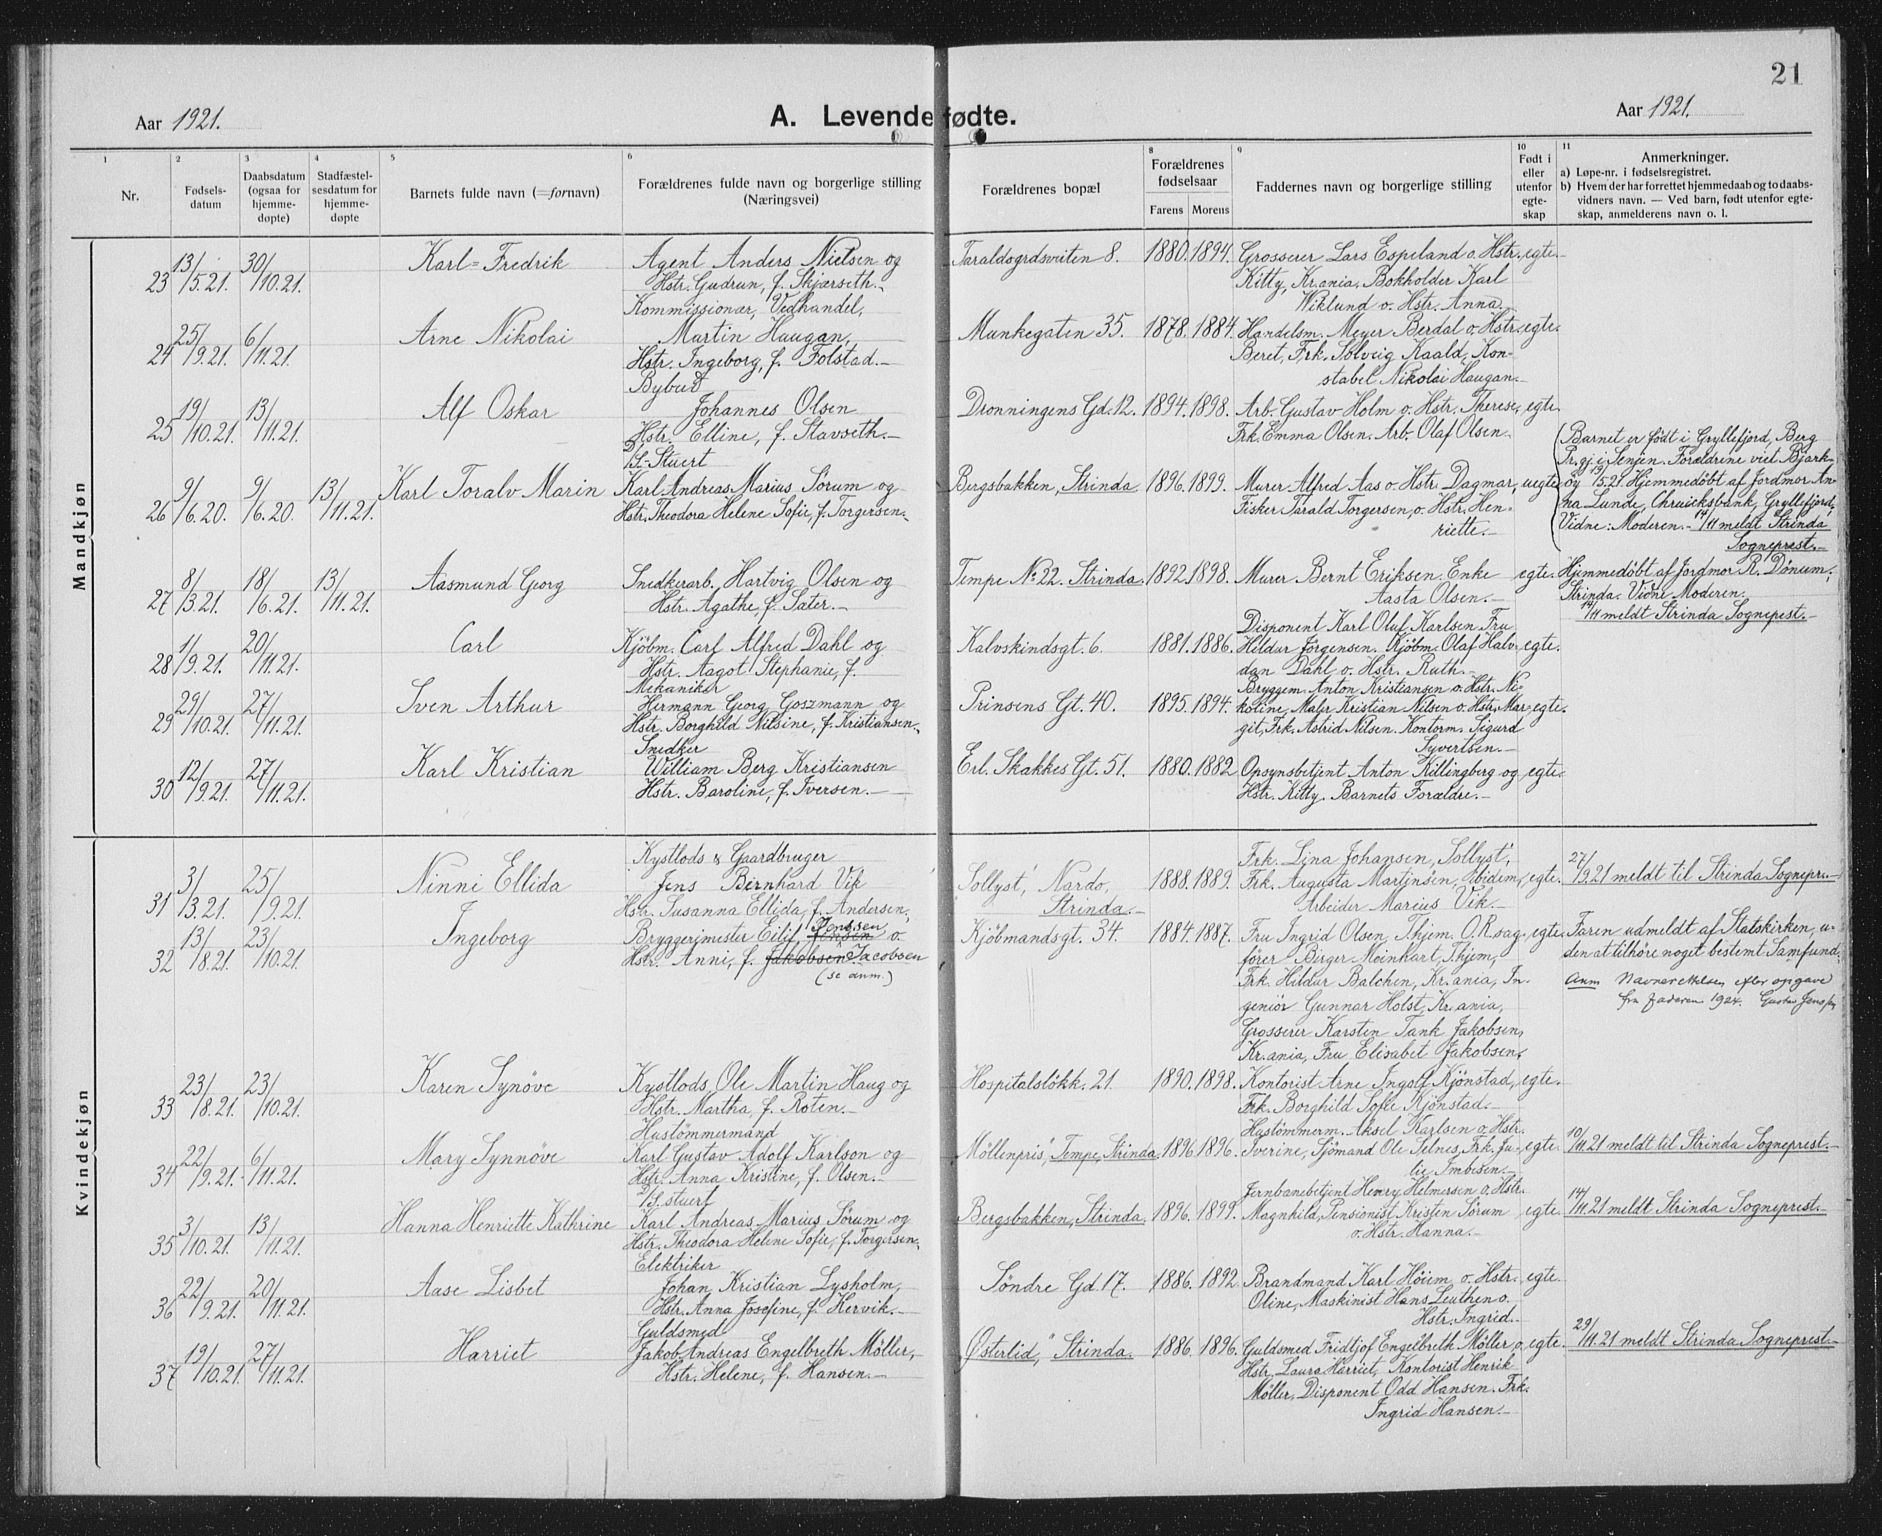 21
Aar 1921.
A. Levendefødte.
Aar 1921.
1
Nr.
2
Fødsels-
datum
3
Daabsdatum
(ogsaa for
hjemme-
døpte)
4
Stadfæstel-
sesdatum for
hjemme-
døpte
5
Barnets fulde navn (=fornavn)
6
Forældrenes fulde navn og borgerlige stilling
(Næringsvei)
Forældrenes bopæl
8
Forældrenes
fødselsaar
Farens
Morens
9
Faddernes navn og borgerlige stilling
10
Født i
eller
utenfor
egte-
skap
11
Anmerkninger.
a) Løpe-nr. i fødselsregistret.
b) Hvem der har forrettet hjemmedaab og to daabs-
vidners navn. — Ved barn, født utenfor egte-
skap, anmelderens navn o. l.
Mandkjøn
23 13/5.21. 30/10.21. Karl=Fredrik
Agent Anders Nielsen og
Hstr. Gudrun, f. Skjærseth.-
Taraldsgrdsveiten 8. 1880. 1894.
Grosserer Lars Espeland o. Hstr. egte.
Kitty, Kr.ania, Bokholder Karl
Wiklund o. Hstr. Anna.-
24 25/9.21. 6/11.21. Arne Nikolai
Kommissionær, Vedhandel,
Martin Haugan,
Hstr. Ingeborg, f. Folstad.-
Munkegaten 35. 1878. 1884.
Handelsm. Meyer Berdal o. Hstr. egte.
Beret, Frk. Solveig Kaald, Kon-
stabel Nikolai Haugan.-
25 19/10.21. 13/11.21. Alf Oskar
Bybud
Johannes Olsen
Hstr. Elline, f. Stavseth.-
Dronningens Gd. 12. 1894. 1898.
Arb. Gustav Holm o. Hstr. Therese, egte.
Frk. Emma Olsen. Arb. Olaf Olsen.
26 9/6.20. 9/6.20. 13/11.21. Karl Toralv Marin
D/S.-Stuert
Karl Andreas Marius Sörum og
Hstr. Theodora Helene Sofie, f. Torgersen.-
Bergsbakken, Strinda 1896. 1899.
Murer Alfred Aas o. Hstr. Dagmar, uegte
Fisker Tarald Torgersen, o. Hstr. Hen-
riette.-
Barnet er født i Gryllefjord, Berg
Pr.gj. i Senjen. Forældrene vied Bjark-
øy 13/5.21. Hjemmedöbt af Jordmor An-
na Lunde, Gryllefjord,
Vidne: Moderen.- 14/11 meldt Strinda
Sogneprest.-
27 8/3.21. 18/6.21. 13/11.21. Aasmund Georg
Snedkerarb. Hartvig Olsen og
Hstr. Agathe, f. Sæter.-
Tempe No 22. Strinda. 1892. 1898.
Murer Bernt Eriksen. Enke egte.
Aasta Olsen.-
Hjemmedöbt af Jordmor R. Dönum,
Strinda. Vidne Moderen.
14/11 meldt Strinda Sognepest.-
28 1/9.21. 20/11.21. Carl
Kjöbm. Carl Alfred Dahl og
Hstr. Aagot Stephanie, f.
Kalvskindsgt. 6 1881. 1886.
Disponent Karl Oluf Karlsen Fru
Hildur Jörgensen. Kjöbm. Olaf Halv- egte.
dan Dahl o. Hstr. Ruth.-
29 29/10.21. 27/11.21. Sven Arthur
Mekaniker
Hermann Georg Goszmann og
Hstr. Borghild Nilsine, f. Kristiansen.
Prinsens Gt. 40. 1895. 1894.
Bryggem. Anton Kristiansen o. Hstr. Ni-
koline, Maler Kristian Nilsen o. Hstr. Mar- egte.
git, Frk. Astrid Nilsen. Kontorm. Sigurd
Syvertsen.-
30 12/9.21. 27/11.21. Karl Kristian
Snedker
William Berg Kristiansen
Hstr. Baroline, f. Iversen.-
Erl. Skakkes Gt. 51. 1880. 1882
Opsynsbetjent Anton Killingberg og egte.
Hstr. Kitty. Barnets Forældre.-
Kvindekjøn
31 3/3.21. 25/9.21. Ninni Ellida
Kystlods & Gaardbruger
Jens Bernhard Vik
Hstr. Susanna Ellida, f. Andersen,
Sollyst, Nardo,
Strinda.- 1888. 1889.
Frk. Lina Johansen, Sollyst,
Frk. Augusta Martinsen, ibidem, egte.
Arbeider Marius Vik.-
27/9.21 meldt til Strinda Sognepr.-
32 13/8.21. 23/10.21. Ingeborg
Bryggerimester Eilif Jensen Jenssen o.
Hstr. Anni, f. Jakobsen. Jacobsen
(se anm.)
Kjöbmandsgt. 34. 1884. 1887.
Fru Ingrid Olsen, Thjem, O.Rsag- egte.
förer Birger Meinhart, Thjem,
Frk. Hildur Balchen, Kr.ania, In
geniör Gunnar Holst, Kr.ania,
Grosserer Karsten Tank Jakobsen,
Kr.ania, Fru Elisabet Jakobsen.
Faren udmeldt af Statskirken, u-
den at tilhöre noget bestemt Samfund.
Anm Navnerettelsen efter opgave
fra faderen 1924. Gustav Jenssen
33 23/8.21. 23/10.21. Karen Synöve
Kystlods, Ole Martin Haug og
Hstr. Martha, f. Roten.-
Hospitalslökk. 21. 1890. 1898.
Kontorist Arne Ingolf Kjönstad, egte.
Frk. Borghild Sofie Kjönstad.-
34 22/9.21. 6/11.21. Mary Synnöve
Hustömmermand
Karl Gustav Adolf Karlson og
Hstr. Anna Kristine, f. Olsen.-
Möllenpris, Tempe, Strinda 1896 1896.
Hustömmerm. Aksel Karlsen o. Hstr.
Sverine, Sjömand Ole Selnes, Frk. Ju- egte
lie Imbisen.-
10/11.21 meldt til Strinda Sogneprest.-
35 3/10.21. 13/11.21. Hanna Henriette Kathrine
D/S. stuert
Karl Andreas Marius Sörum og
Hstr. Theodora Helene Sofie, f. Torgersen.
Bergsbakken, Strinda. 1896. 1899.
Jernbanebetjent Henry Helmersen o. Hstr.
Magnhild, Pensionist Kristen Sörum egte.
o. Hstr. Hanna.-
14/11.21 meldt Strinda Sogneprest.-
36 22/9.21. 20/11.21. Aase Lisbet
Elektriker
Johan Kristian Lysholm,
Hstr. Anna Josefine, f. Hervik.-
Söndre Gd 17. 1886. 1892.
Brandmand Karl Höiem o. Hstr. egte.
Oline, Maskinist Hans Leuthen o.
Hstr. Ingrid.-
37 19/10.21. 27/11.21. Harriet
Guldsmed
Jakob Andreas Engelbreth Möller,
Hstr. Helene, f. Hansen.-
Østerlid," Strinda. 1886. 1896.
Guldsmed Fridtjof Engelbreth Möller o. egte.
Hstr. Laura Harriet, Kontorist Henrik
Möller, Disponent Odd Hansen. Frk.
Ingrid Hansen.-
29/11.21 meldt Strinda Sogneprest.-